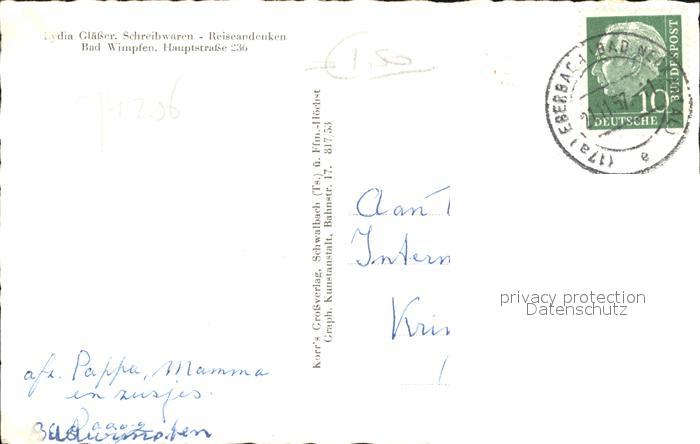 Lydia Gläßer, Schreibwaren - Reiseandenken
Bad Wimpfen, Hauptstraße 236
1,50
Korr's Großverlag, Schwalbach (Ts.) ü. Ffm.-Höchst
Graph. Kunstanstalt, Bahnstr. 17. 817 53
(17a) EBERBACH (BAD
a
10
DEUTSCHE
BUNDESPOST
Aan
Intern
Kri
privacy protection
Datenschutz
afz. Pappa, Mamma
en zusjes.